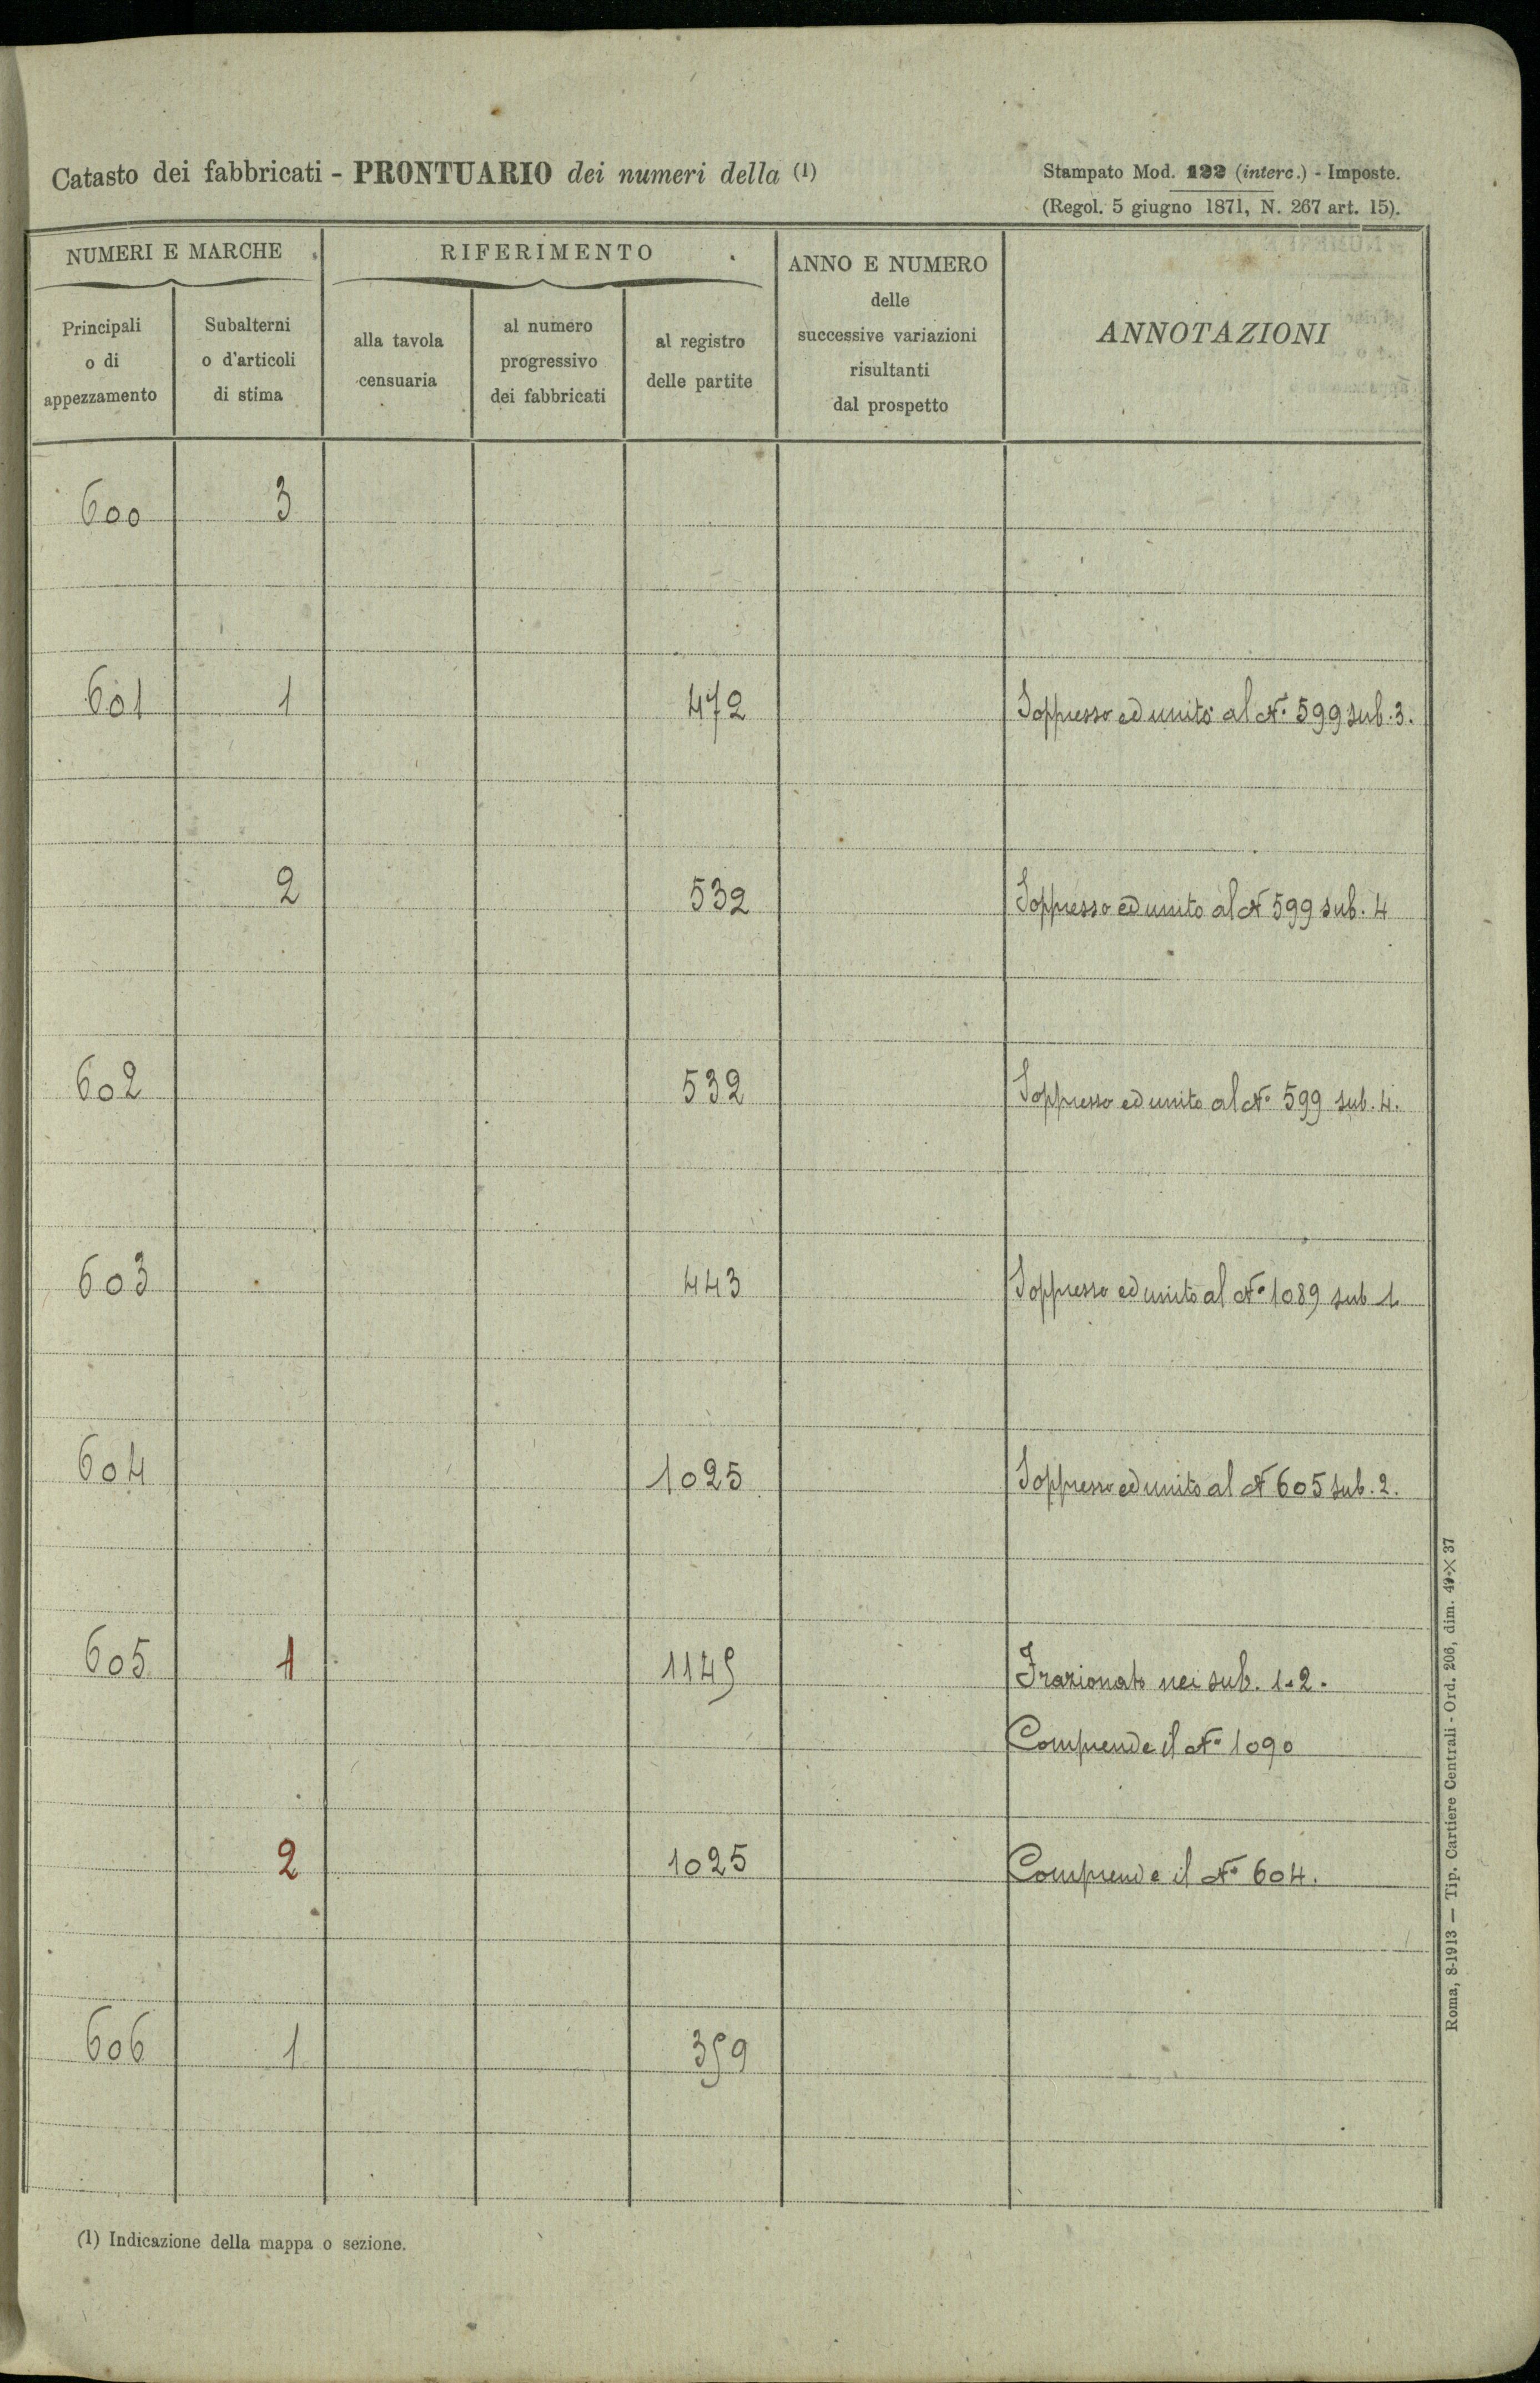 Catasto dei fabbricati - PRONTUARIO dei numeri della (1)
Stampato Mod. 122 (interc.) - Imposte.
(Regol. 5 giugno 1871, N. 267 art. 15).
NUMERI E MARCHE
RIFERIMENTO
ANNO E NUMERO
delle
successive variazioni
risultanti
dal prospetto
ANNOTAZIONI
Principali
o di
appezzamento
Subalterni
o d'articoli
di stima
alla tavola
censuaria
al numero
progressivo
dei fabbricati
al registro
delle partite
600 3
601 1 472 Soppresso ed unito al N.º 599 sub. 3.
2 532 Soppresso ed unito al N 599 sub. 4
602 532 Soppresso ed unito al Nº 599 sub. 4.
603 443 Soppresso ed unito al Nº 1089 sub 1.
604 1025 Soppresso ed unito al N 605 sub. 2.
605 1 1145 Frazionato nei sub. 1-2.
Comprende il Nº 1090
2 1025 Comprende il Nº 604.
606 1 359
(1) Indicazione della mappa o sezione.
Roma, 8-1913 — Tip. Cartiere Centrali - Ord. 206, dim. 49×37